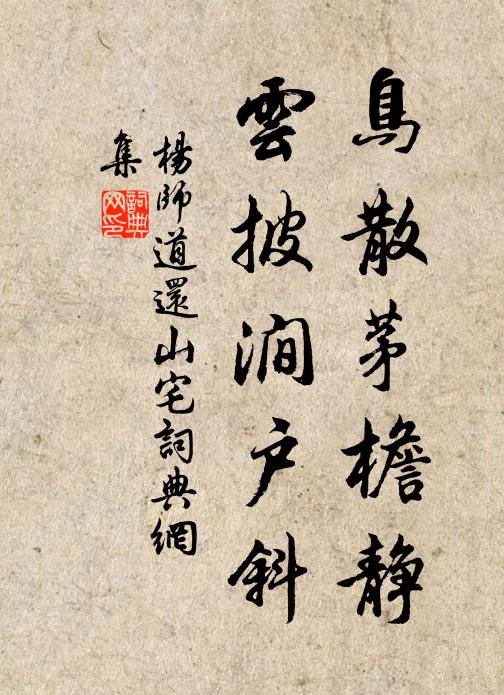 鳥散茅檐静
雲披澗户斜
楊師道還山宅詞典網
集
詞典
网印